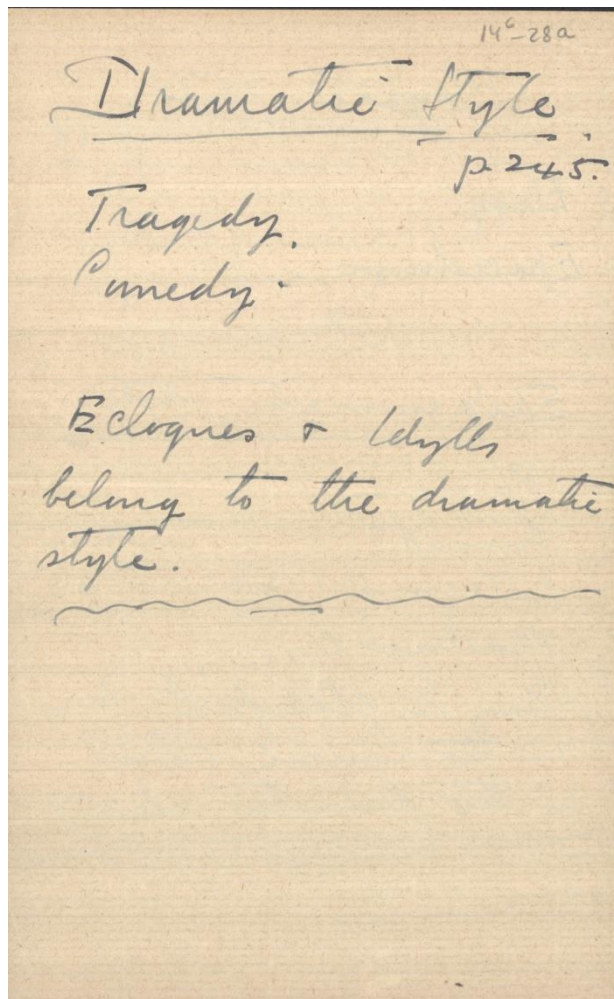 14c-28a
Dramatic Style
p. 245.
Tragedy.
Comedy.
Eclogues & Idylls
belong to the dramatic
style.